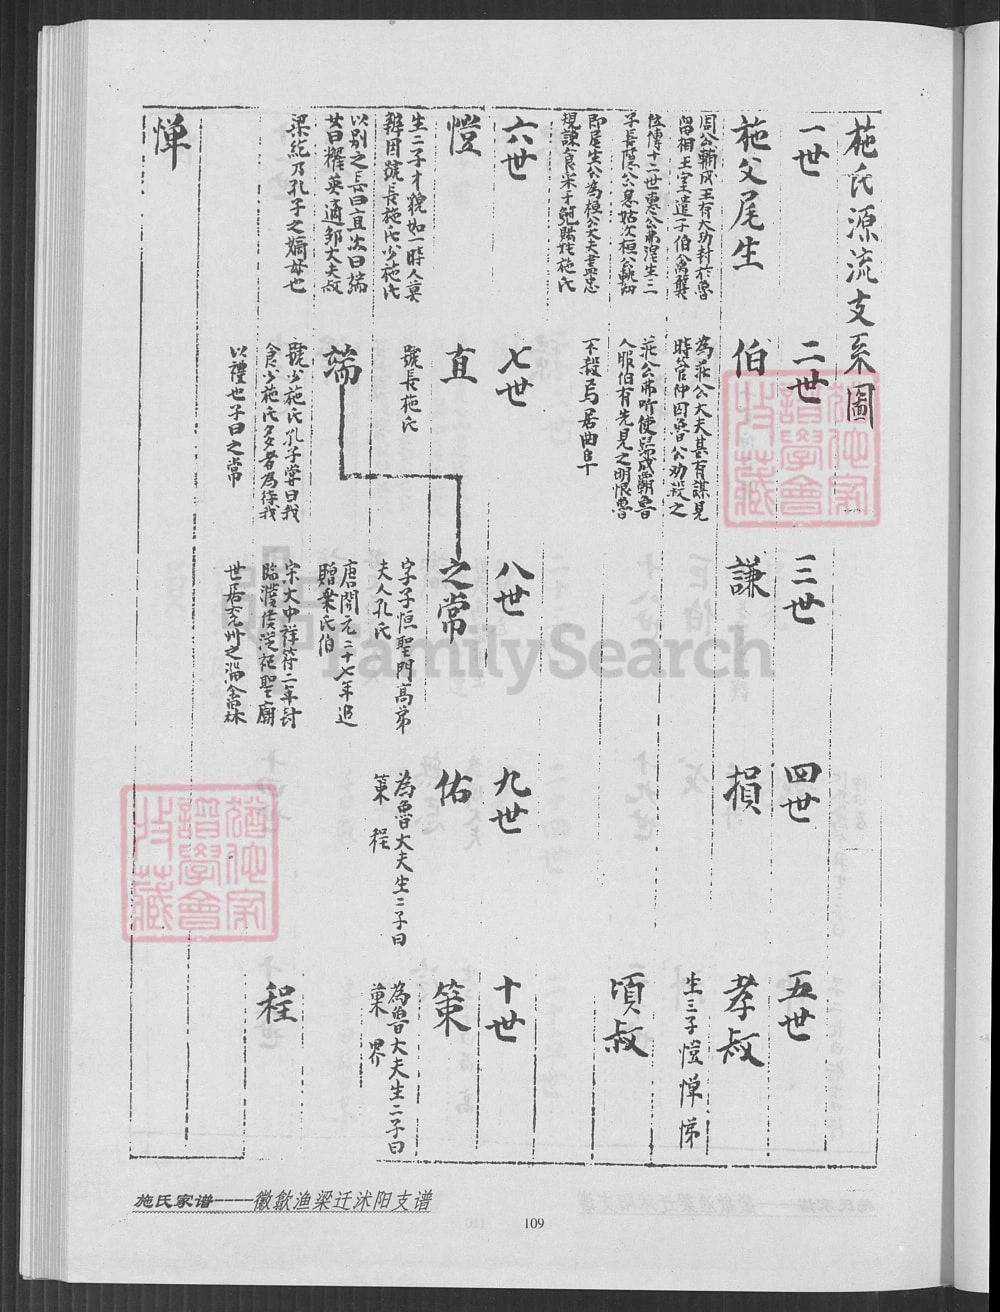 施氏源流支系圖
一世
施父尾生
周公輔成王有大功封於魯
留相王室遣子伯禽襲
位傳十二世惠公弗湟生三
子長隱公息姑次桓公軌幼
即尾生公為桓公大夫盡忠
規諫食采于
賜姓施氏
二世
伯
為莊公大夫甚有謀見
時管仲囚魯公勸殺之
莊公弗听使歸成霸魯
人服伯有先見之明恨魯
不殺焉居曲阜
三世
謙
四世
損
五世
孝叔
生三子愷 惮 悌
頃叔
六世
愷
生二子才貌如一時人莫
辨因號長施氏少施氏
以别之長曰直次曰端
女曰
英適邹大夫叔
梁紇乃孔子之嫡母也
七世
直
號長施氏
端
號少施氏孔子嘗曰我
食少施氏多者為待我
以禮也子曰之常
八世
之常
字子恒聖門高弟
夫人孔氏
唐開元二十七年追
贈乘氏伯
宋大中祥符二年封
臨濮侯從祀聖廟
世居兖州之
九世
佑
為魯大夫生二子曰
策 程
十世
策
為魯大夫生二子曰
菓 界
程
惮
施氏家谱----徽歙渔梁迁沭阳支谱
109
FamilySearch
譜學會
收藏
譜學會
收藏